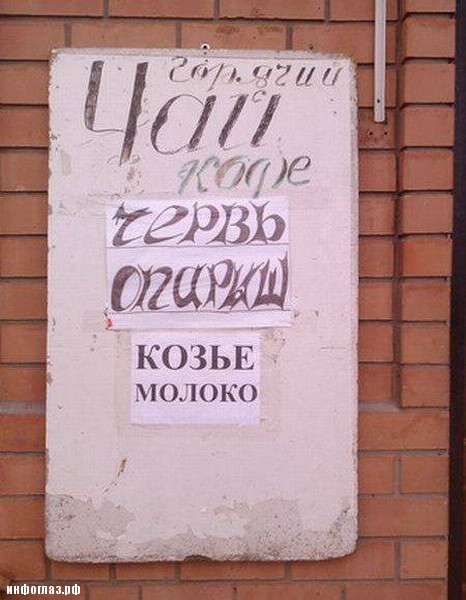 горячий
Чай
кофе
червь
опарыш
КОЗЬЕ
МОЛОКО
инфоглаз.рф